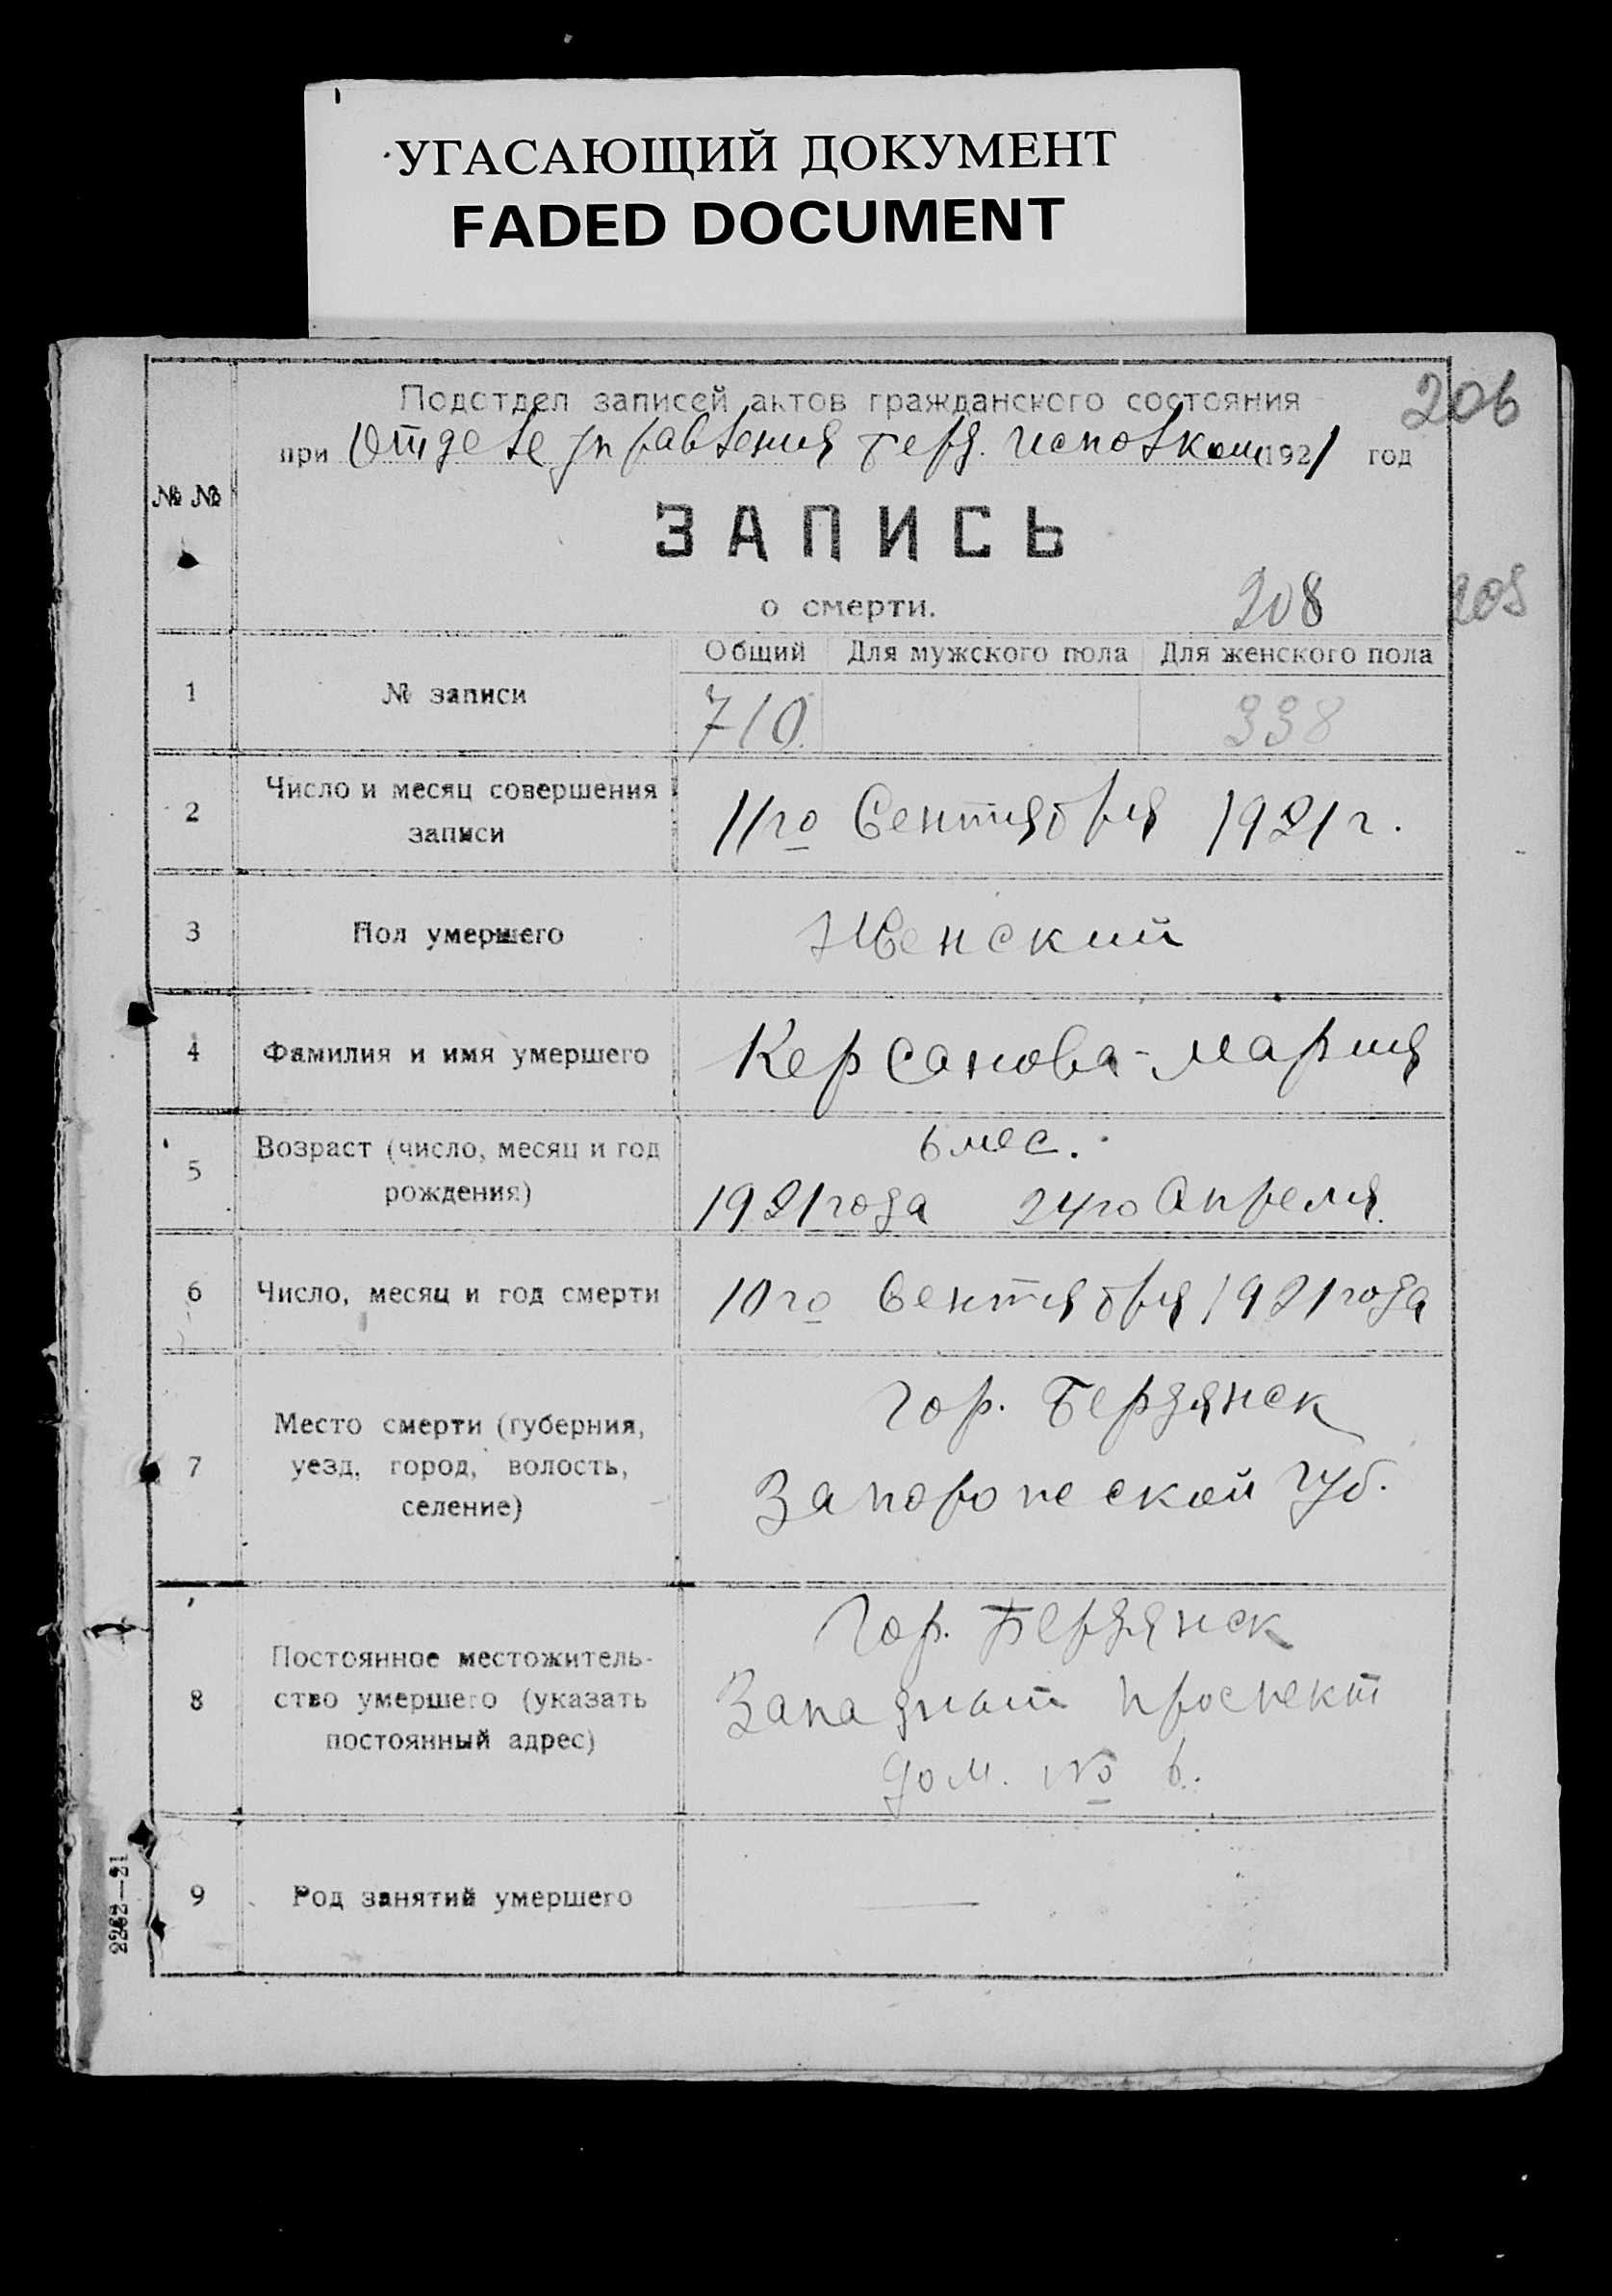 УГАСАЮЩИЙ ДОКУМЕНТ
FADED DOCUMENT
206
Подотдел записей актов гражданского состояния
при Отделе управления Берд. Исполкома 1921 год
№ №
ЗАПИСЬ
о смерти.
208
Общий Для мужского пола Для женского пола
1 № записи 710. 338
2 Число и месяц совершения
записи
11го Сентября 1921 г.
3 Пол умершего Женский
4 Фамилия и имя умершего Керсанова-Мария
5 Возраст (число, месяц и год
рождения)
6 мес.
1921 года 24го Апреля.
6 Число, месяц и год смерти 10го Сентября 1921 года
7 Место смерти (губерния,
уезд, город, волость,
селение)
Гор. Бердянск
Запорожеской Губ.
8 Постоянное местожитель-
ство умершего (указать
постоянный адрес)
Гор. Бердянск
Западный проспект
дом. № 6.
9 Род занятий умершего —
2262—21